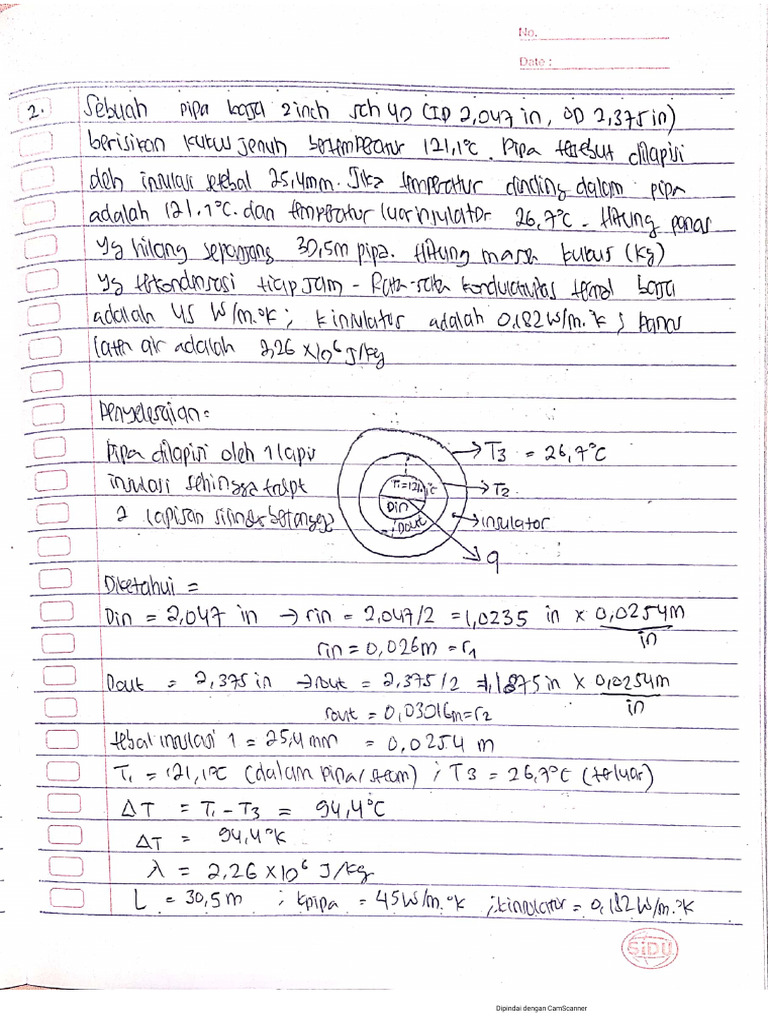 No.
Date :
2. Sebuah pipa baja 2 inch sch 40 (ID 2,047 in, OD 2,375 in)
berisikan kukus jenuh bertemperatur 121,1°C. Pipa tersebut dilapisi
oleh insulasi setebal 25,4mm. Jika temperatur dinding dalam pipa
adalah 121.1°C. dan temperatur luar insulator 26,7°C - Hitung panas
yg hilang sepanjang 30,5m pipa. Hitung massa kukus (kg)
yg terkondensasi tiap jam - Rata-rata konduktivitas termal baja
adalah 45 W/m.°K ; k insulator adalah 0,182 W/m.°K ; panas
laten air adalah 2,26 x 10⁶ J/kg
Penyelesaian =
Pipa dilapisi oleh 1 lapis
insulasi sehingga trdpt
2 lapisan silinder
T₁ = 121,1°C
Din
Dout
→ T3 = 26,7°C
→ T2
→ insulator
q
Diketahui =
Din = 2,047 in → rin = 2,047/2 = 1,0235 in x 0,0254m/in
rin = 0,026m = r₁
Dout = 2,375 in → rout = 2,375/2 = 1,1875 in x 0,0254m/in
rout = 0,03016m = r₂
tebal insulasi 1 = 25,4 mm = 0,0254 m
T₁ = 121,1°C (dalam pipa/steam) ; T3 = 26,7°C (terluar)
ΔT = T₁ - T3 = 94,4°C
ΔT = 94,4°K
λ = 2,26 x 10⁶ J/kg
L = 30,5 m ; kpipa = 45 W/m.°K ; kinsulator = 0,182 W/m.°K
SiDU
Dipindai dengan CamScanner